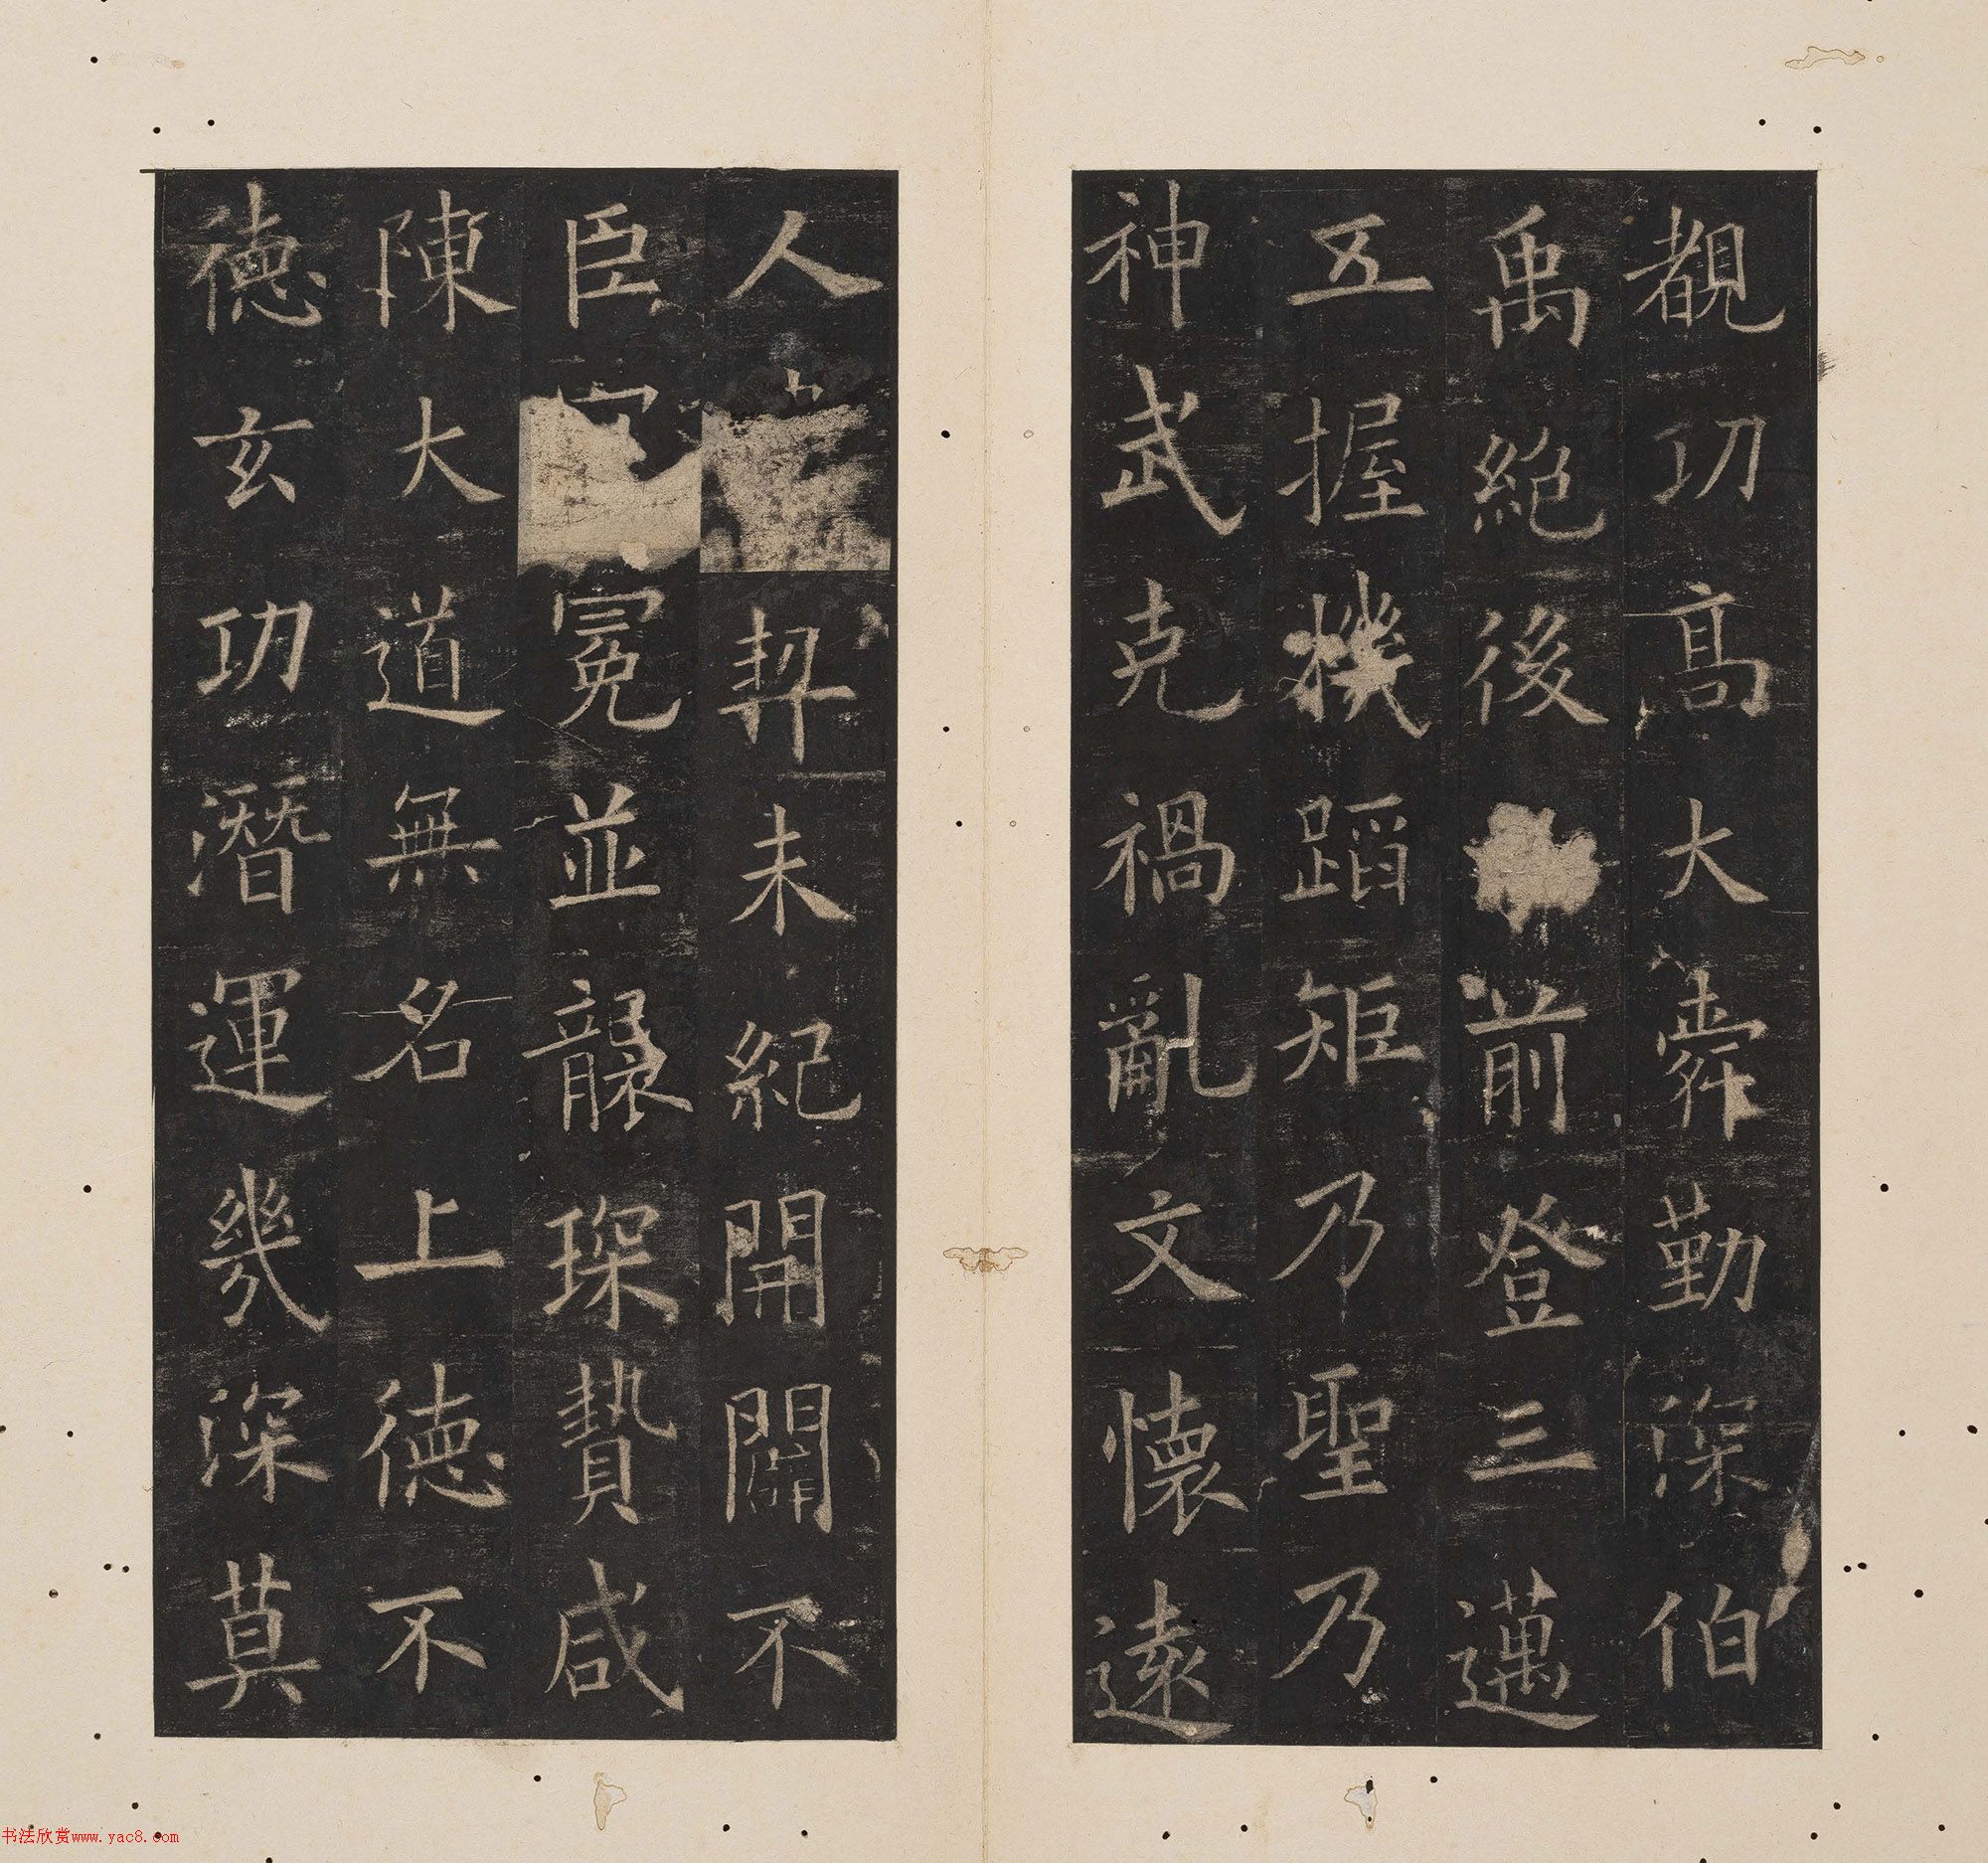 覩功高大舜勤深伯
禹絕後前登三邁
五握機蹈矩乃聖乃
神武克禍亂文懷遠
人契未紀開闢不
臣冠冕並襲琛贄咸
陳大道無名上德不
德玄功潛運幾深莫
书法欣赏www.yac8.com